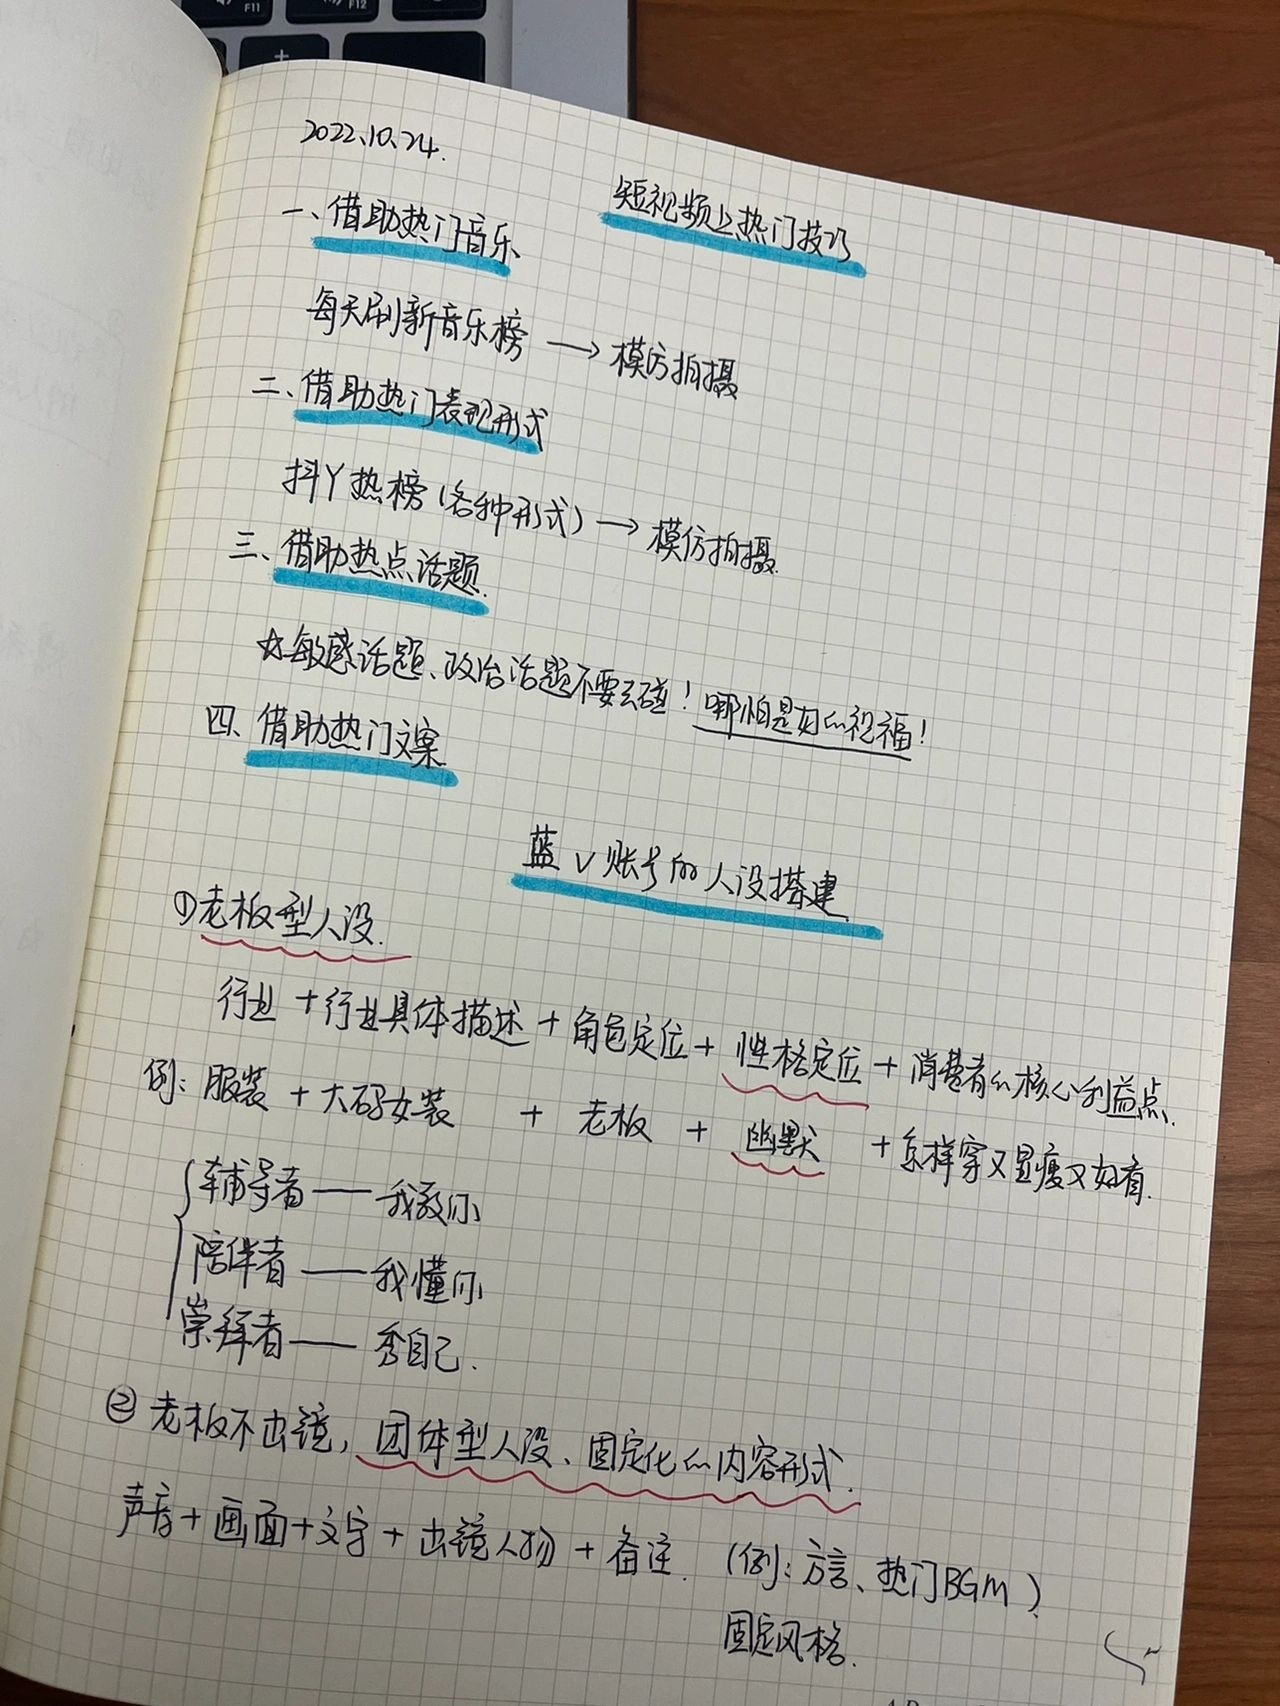 F11
F12
2022.10.24.
短视频上热门技巧
一、借助热门音乐
每天刷新音乐榜 → 模仿拍摄
二、借助热门表现形式
抖Y热榜（各种形式）→ 模仿拍摄.
三、借助热点话题.
☆敏感话题、政治话题不要去碰！哪怕是好的祝福！
四、借助热门文案
蓝V账号的人设搭建
①老板型人设.
行业 + 行业具体描述 + 角色定位 + 性格定位 + 消费者的核心利益点.
例：服装 + 大码女装 + 老板 + 幽默 + 怎样穿又显瘦又好看.
辅导者 —— 我教你
陪伴者 —— 我懂你
崇拜者 —— 秀自己.
② 老板不出镜，团体型人设、固定化的内容形式.
声音+画面+文字 + 出镜人物 + 备注. （例：方言、热门BGM）
固定风格.